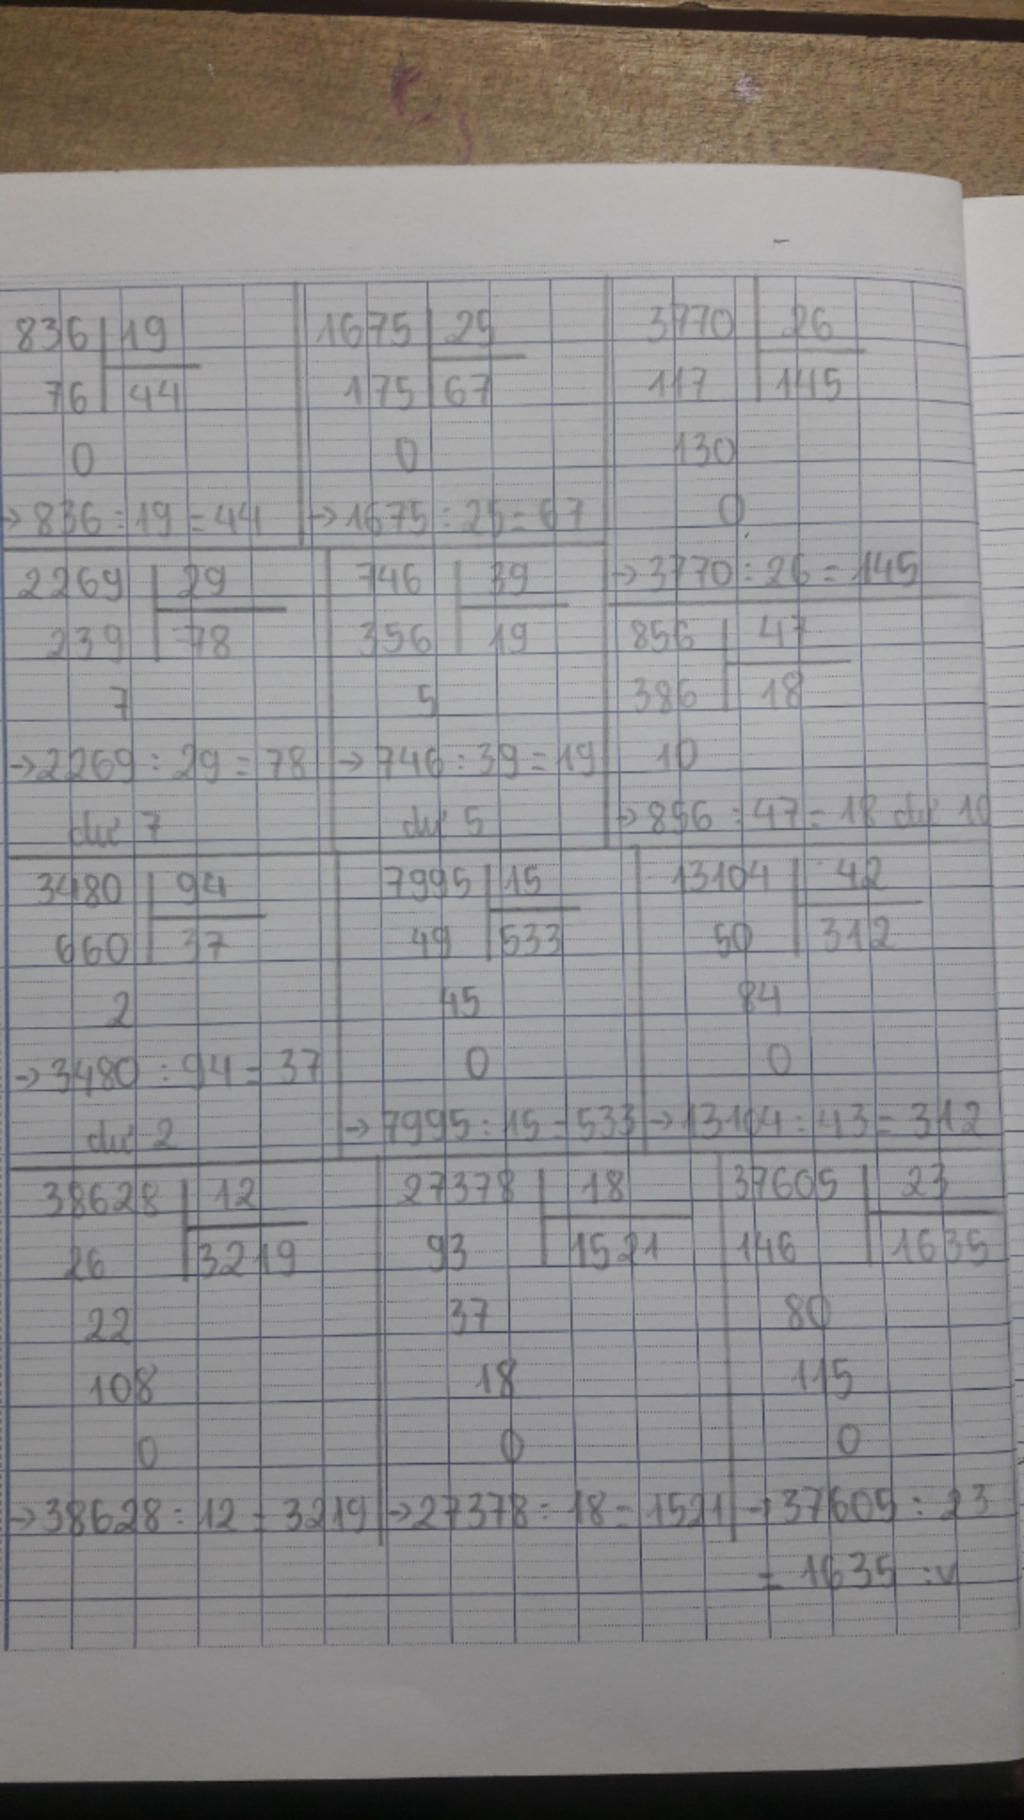 836 19
76 44
0
→ 836 : 19 = 44
1675 25
175 67
0
→ 1675 : 25 = 67
3770 26
117 145
130
0
→ 3770 : 26 = 145
2269 29
239 78
7
→ 2269 : 29 = 78
dư 7
746 39
356 19
5
→ 746 : 39 = 19
dư 5
856 47
386 18
10
→ 856 : 47 = 18 dư 10
3480 94
660 37
2
→ 3480 : 94 = 37
dư 2
7995 15
49 533
45
0
→ 7995 : 15 = 533
13104 42
50 312
84
0
→ 13104 : 43 = 312
38628 12
26 3219
22
108
0
→ 38628 : 12 = 3219
27378 18
93 1521
37
18
0
→ 27378 : 18 = 1521
37605 23
146 1635
80
115
0
→ 37605 : 23
= 1635 :v